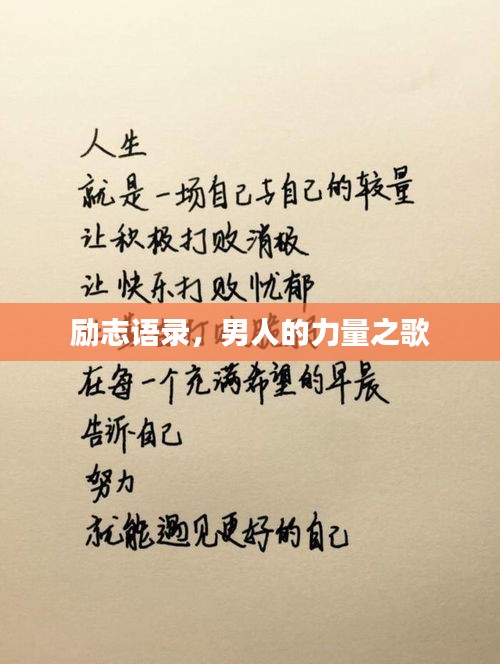 人生
就是一场自己与自己的较量
让积极打败消极
让快乐打败忧郁
励志语录，男人的力量之歌
在每一个充满希望的早晨
告诉自己
努力
就能遇见更好的自己